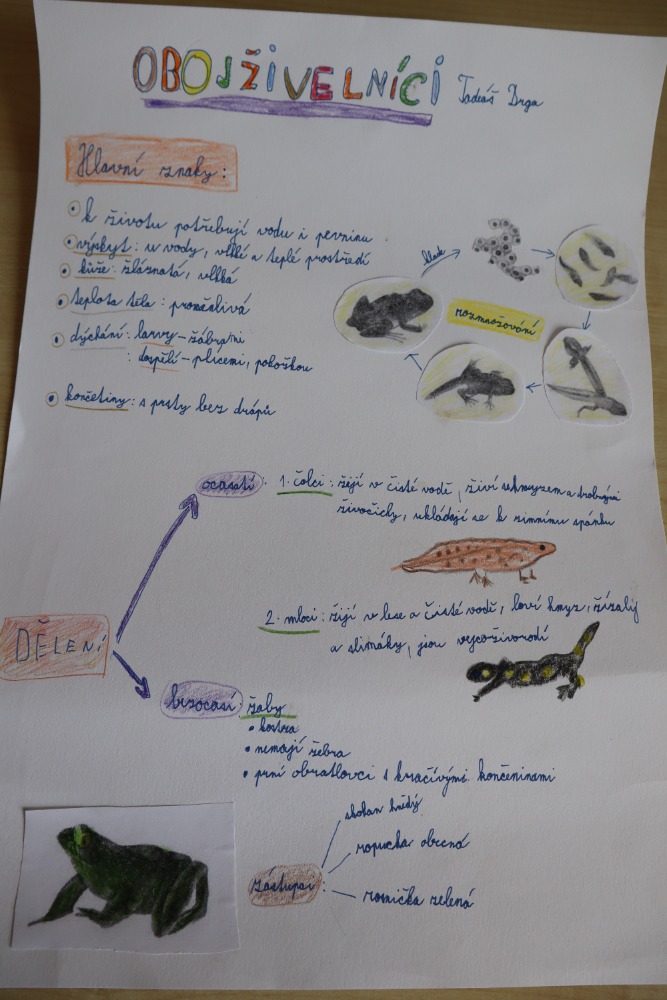 OBOJŽIVELNÍCI Tadeáš Drga
Hlavní znaky:
k životu potřebují vodu i pevninu
výskyt: u vody, vlhké a teplé prostředí
kůže: žláznatá, vlhká
teplota těla: proměnlivá
dýchání: larvy - žábrami
: dospělí - plícemi, pokožkou
končetiny: s prsty bez drápů
rozmnožování
DĚLENÍ
ocasatí:
1. čolci: žijí v čisté vodě, živí se hmyzem a drobnými
živočichy, ukládají se k zimnímu spánku
2. mloci: žijí v lese a čisté vodě, loví hmyz, žížaly
a slimáky, jsou vejcoživorodí
bezocasí: žaby
kostra
nemají žebra
první obratlovci s kráčivými končeninami
zástupci:
skokan hnědý
ropucha obecná
rosnička zelená